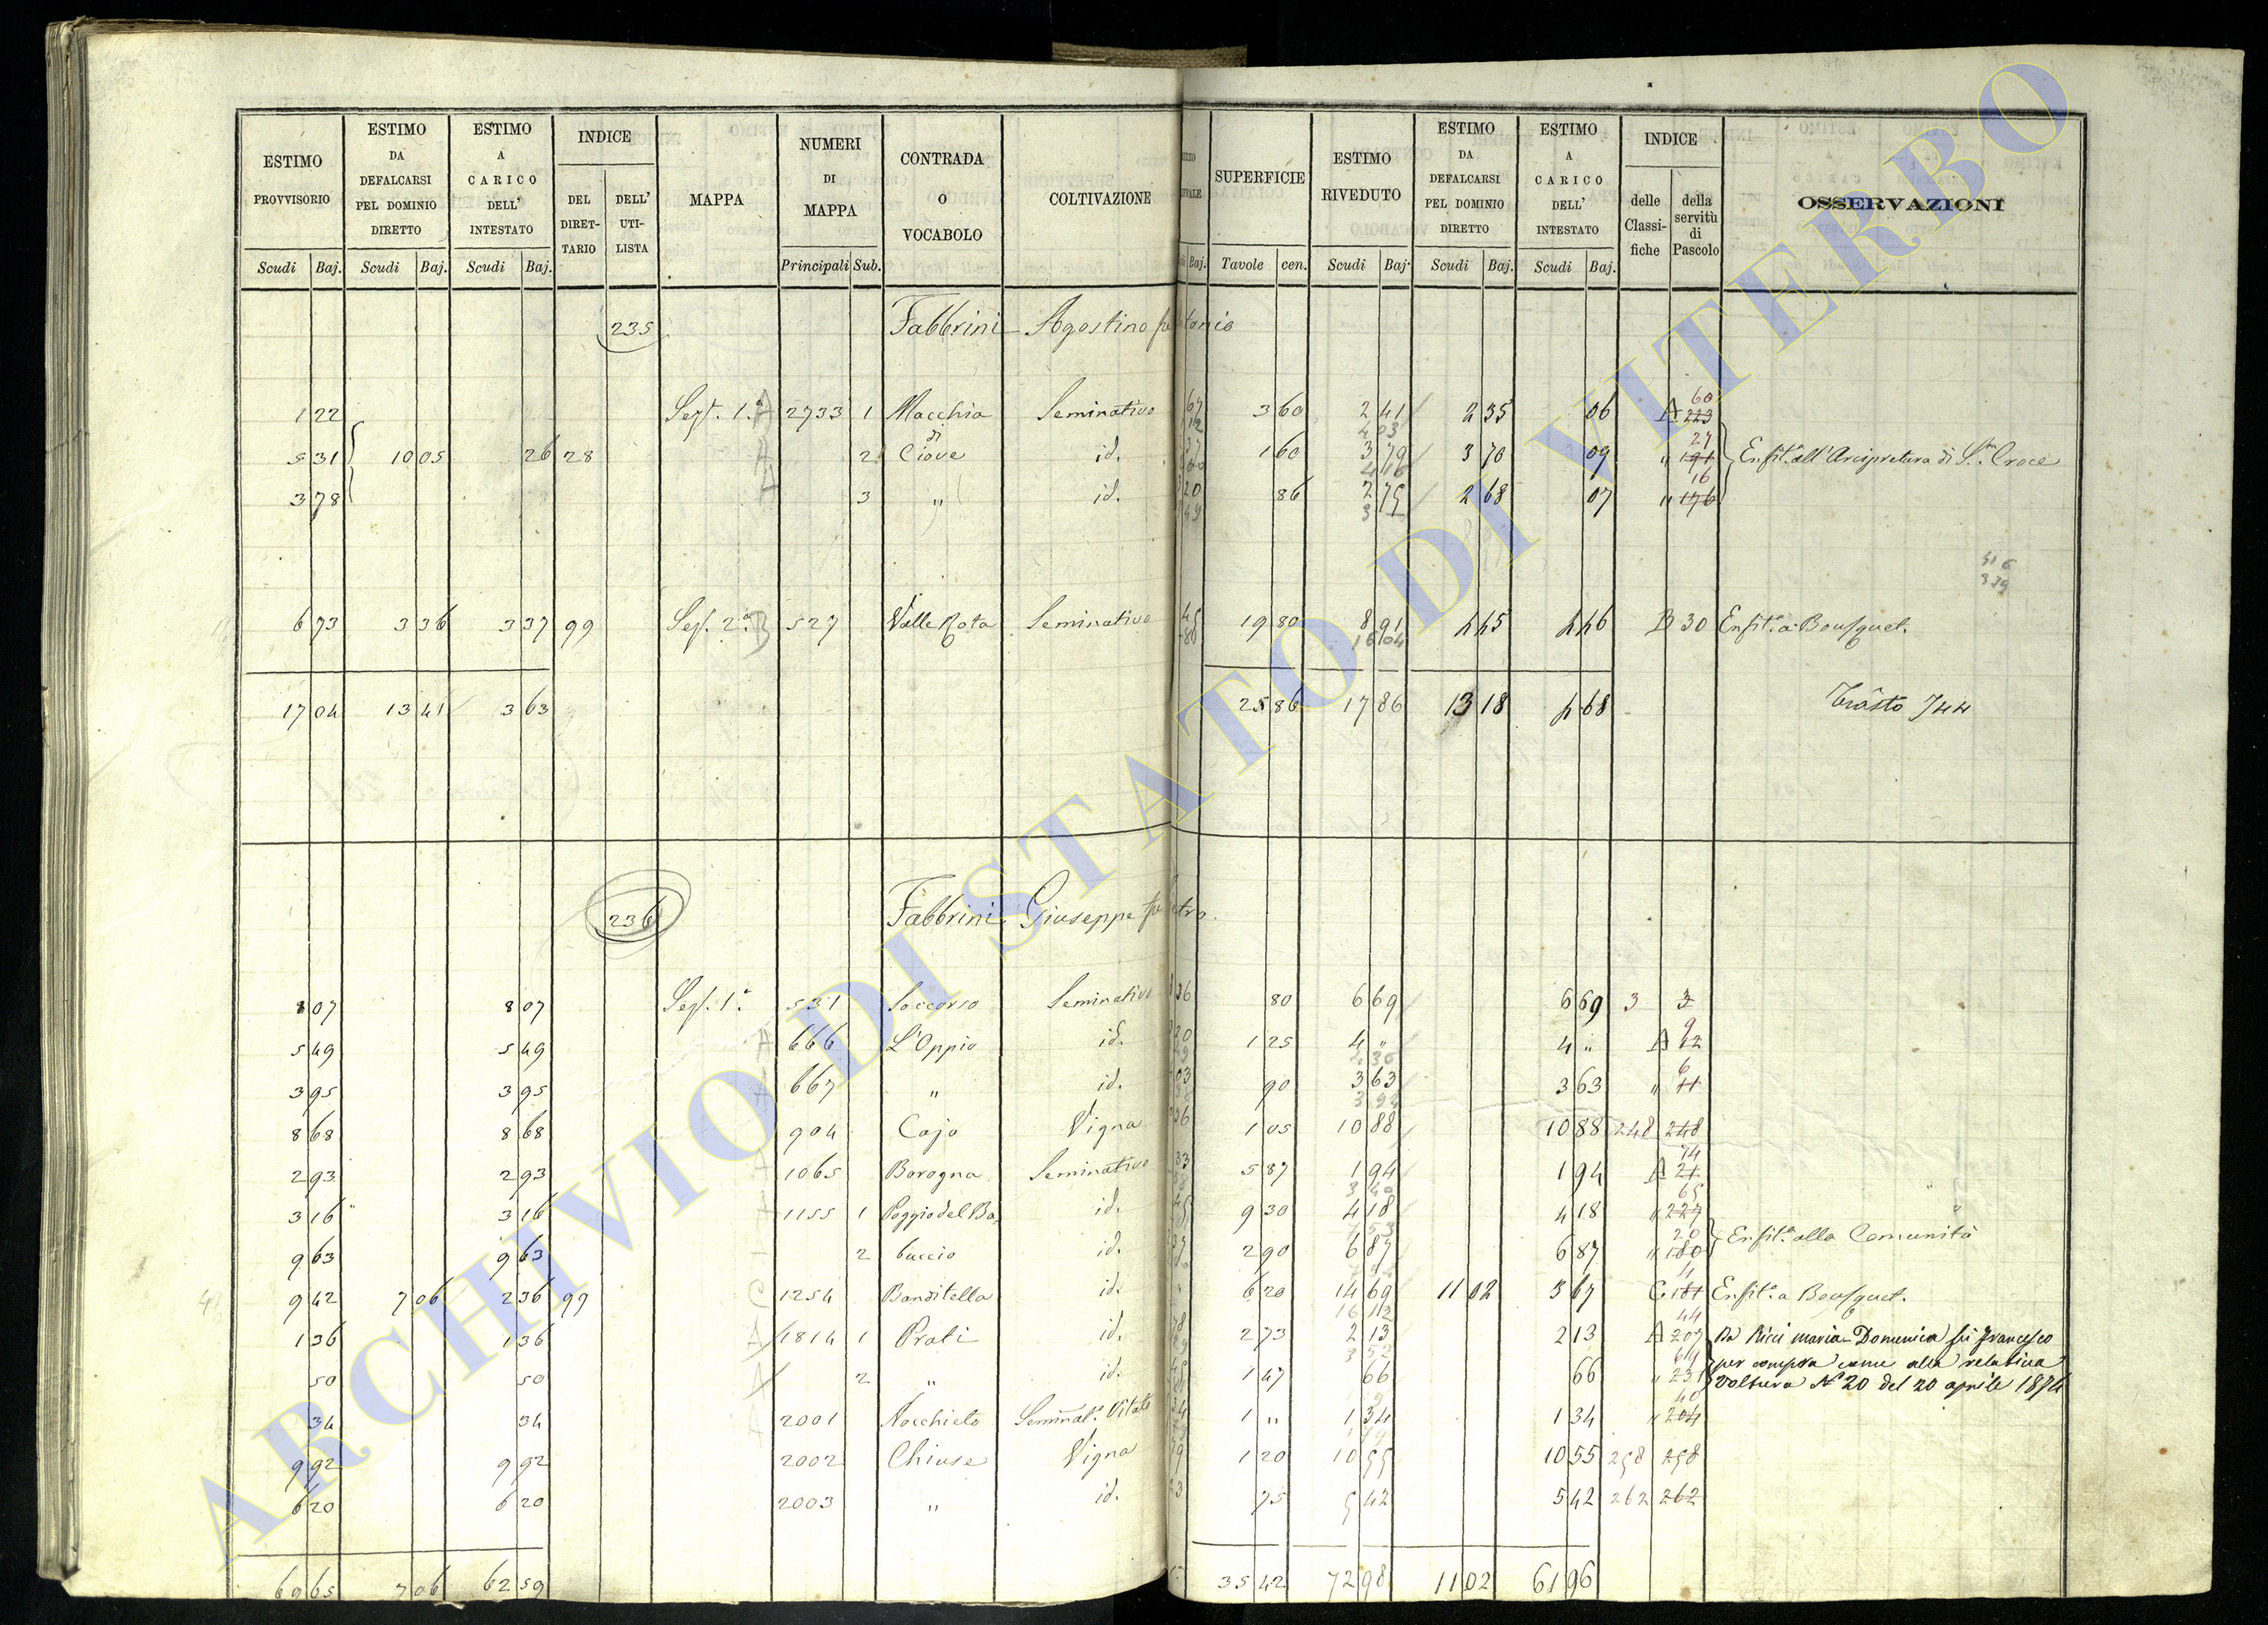 ESTIMO PROVVISORIO Scudi Baj.
ESTIMO DA DEFALCARSI PEL DOMINIO DIRETTO Scudi Baj.
ESTIMO A CARICO DELL' INTESTATO Scudi Baj.
INDICE DEL DIRETTARIO DELL' UTILISTA
MAPPA
NUMERI DI MAPPA Principali Sub.
CONTRADA O VOCABOLO
COLTIVAZIONE
Baj.
SUPERFICIE Tavole cen.
ESTIMO RIVEDUTO Scudi Baj.
ESTIMO DA DEFALCARSI PEL DOMINIO DIRETTO Scudi Baj.
ESTIMO A CARICO DELL' INTESTATO Scudi Baj.
INDICE delle Classifiche della servitù di Pascolo
OSSERVAZIONI
235 Fabbrini Agostino
1 22 Sez. 1.a A 2733 1 Macchia Seminativo 67 3 60 2 41 2 35 06 A 60 223
di
5 31 10 05 26 28 2 Ciove id. 37 1 60 3 79 3 70 09 " 27 191 Enfit. all'Arcipretura di S. Croce
3 78 3 " id. 20 86 2 75 2 68 07 " 16 176
6 73 3 36 3 37 99 Sez. 2.a B 527 Valle Rota Seminativo 45 19 80 8 91 4 45 4 46 B 30 Enfit. a Bousquet.
17 04 13 41 3 63 25 86 17 86 13 18 4 68
236 Fabbrini Giuseppe
8 07 8 07 Sez. 1.a 531 Soccorso Seminativo 36 80 6 69 6 69 3 3
5 49 5 49 A 666 L'Oppio id. 20 1 25 4 " 4 " A 9 12
3 95 3 95 667 " id. 03 90 3 63 3 63 " 6 11
8 68 8 68 904 Cajo Vigna 36 1 05 10 88 10 88 248 248
2 93 2 93 1065 Borogna Seminativo 33 5 87 1 94 1 94 A 74 21
3 16 3 16 1155 1 Poggio del Ba- id. 45 9 30 4 18 4 18 " 65 227
9 63 9 63 2 tuccio id. 37 2 90 6 87 6 87 " 20 180 Enfit. alla Comunità
9 42 7 06 2 36 99 C 1254 Banditella id. 6 20 14 69 11 02 3 67 C 11 181 Enfit. a Bousquet.
1 36 1 36 A 1814 1 Prati id. 78 2 73 2 13 2 13 A 44 207 Da Ricci Maria Domenica fu Francesco
50 50 2 " id. 45 1 47 66 66 " 69 231 per compra come alla relativa
voltura N° 20 del 20 aprile 1874
34 34 2001 Nocchieto Seminat. Vitato 34 1 " 1 34 1 34 " 40 204
9 92 9 92 2002 Chiuse Vigna 79 1 20 10 55 10 55 258 258
6 20 6 20 2003 " id. 23 75 5 42 5 42 262 262
69 65 7 06 62 59 35 42 72 98 11 02 61 96
ARCHIVIO DI STATO DI VITERBO